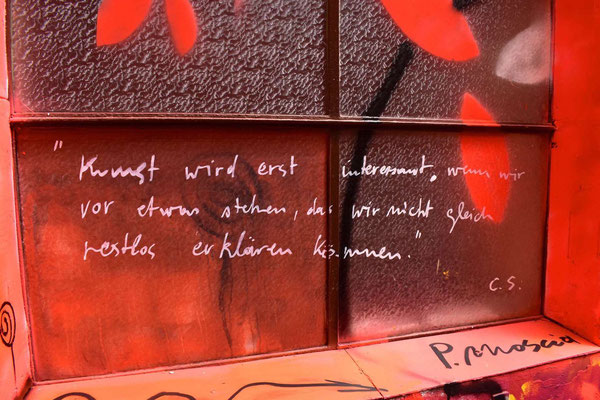 "Kunst wird erst interessant, wenn wir
vor etwas stehen, das wir nicht gleich
restlos erklären können."
C.S.